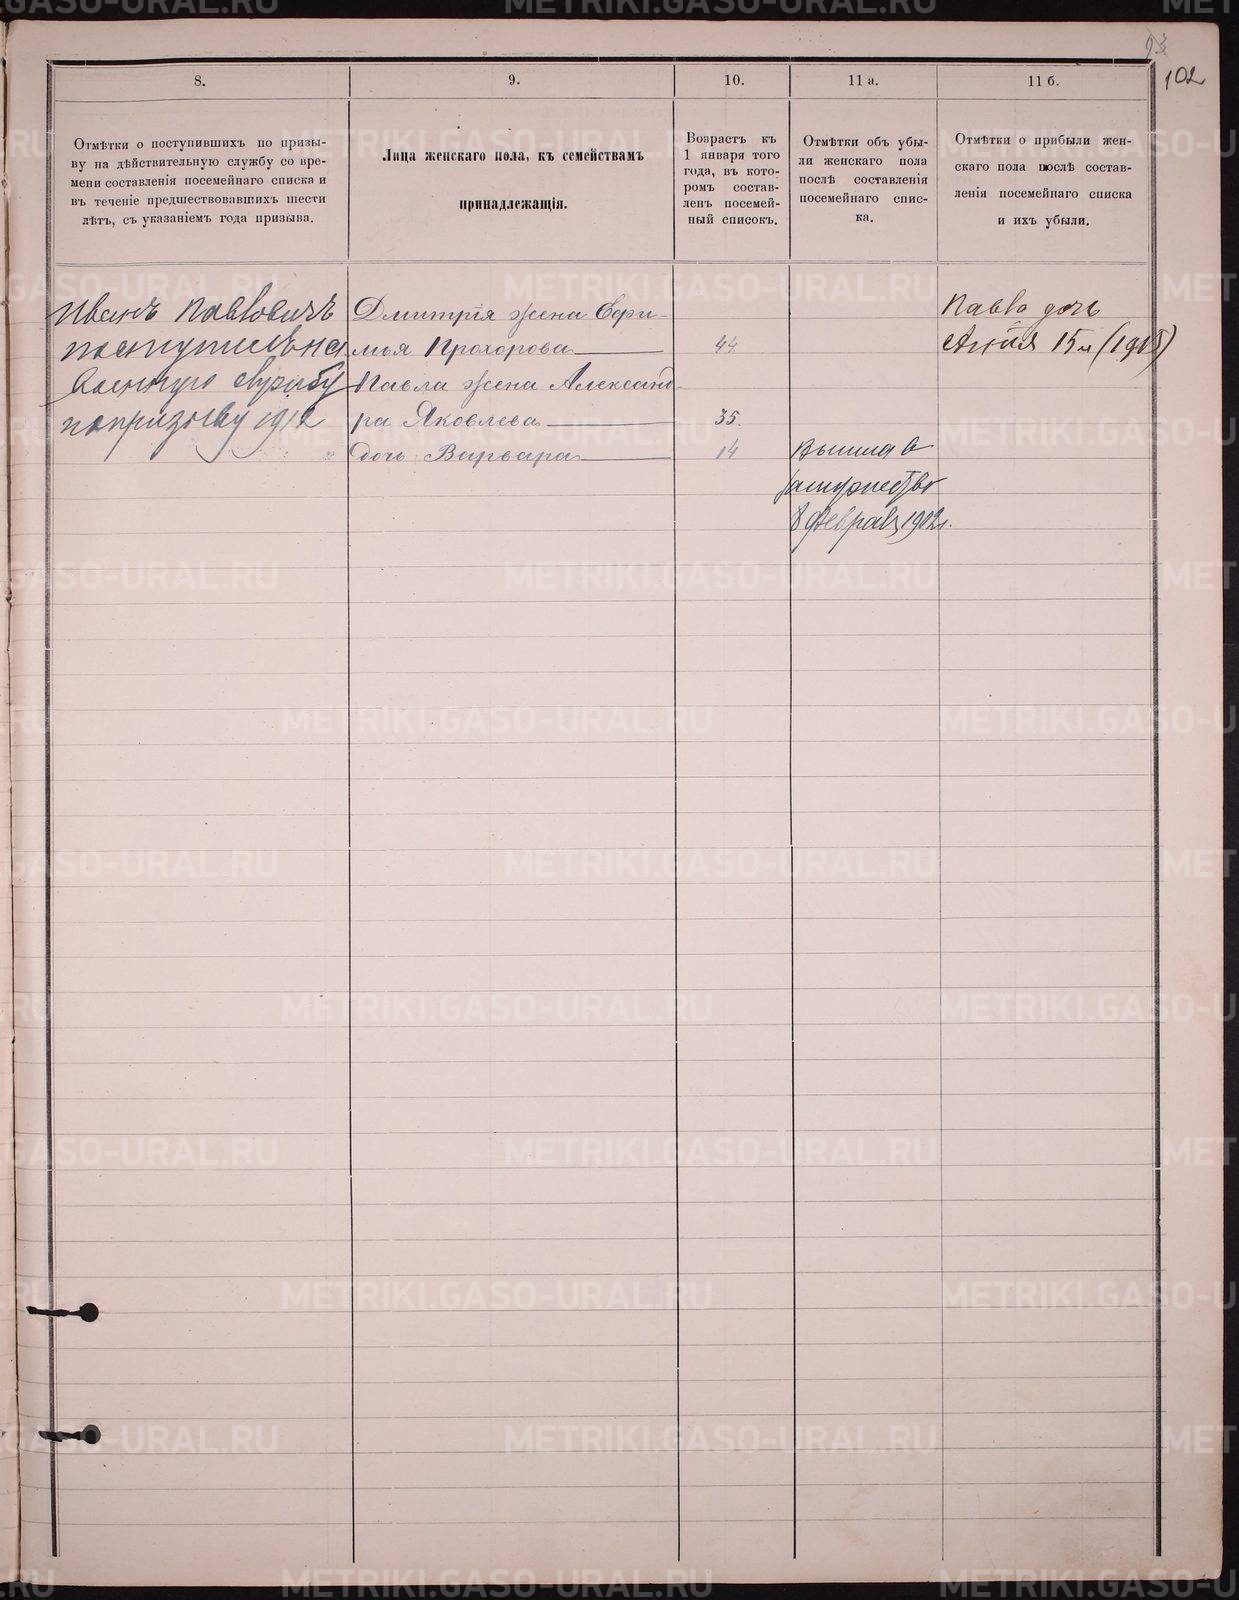 93
102
8.
9.
10.
11 а.
11 б.
Отмѣтки о поступившихъ по призы-
ву на дѣйствительную службу со вре-
мени составленія посемейнаго списка и
въ теченіе предшествовавшихъ шести
лѣтъ, съ указаніемъ года призыва.
Лица женскаго пола, къ семействамъ
принадлежащія.
Возрастъ къ
1 января того
года, въ кото-
ромъ состав-
ленъ посемей-
ный списокъ.
Отмѣтки объ убы-
ли женскаго пола
послѣ составленія
посемейнаго спис-
ка.
Отмѣтки о прибыли жен-
скаго пола послѣ состав-
ленія посемейнаго списка
и ихъ убыли.
Иванъ Павловичъ
поступилъ на
военную службу
по призыву 1912
Дмитрія жена Ефи-
мья Прохорова 44
Павла жена Александ-
ра Яковлева 35.
дочь Варвара 14
Вышла в
замужество
8 февраля 1902 г.
Павла дочь
15 л (1915)
METRIKI.GASO-URAL.RU